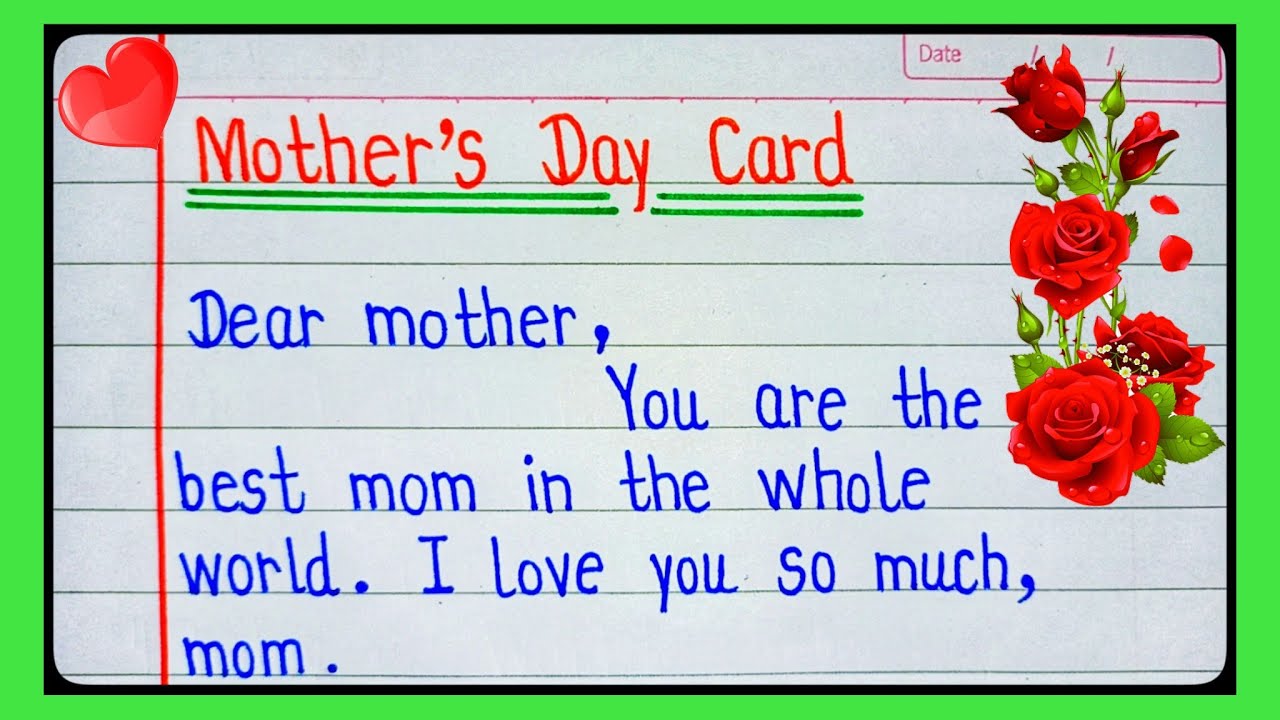 Date / /
Mother's Day Card
Dear mother,
You are the
best mom in the whole
world. I love you so much,
mom.